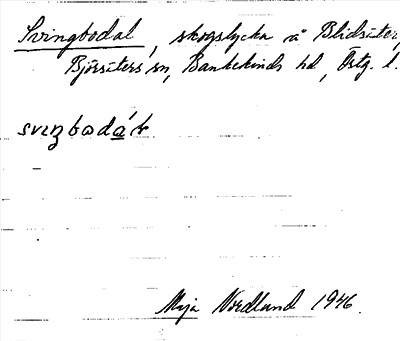 Svingbodal, skogslycka å Blidsäter,
Björsäters sn, Bankekinds hd, Östg. l.
Maja Nordlund 1946.